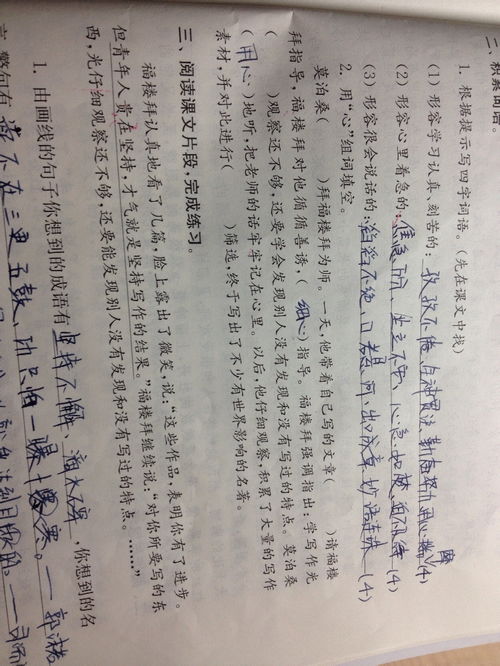 二、积累词语。
1. 根据提示写四字词语。(先在课文中找)
(1) 形容学习认真、刻苦的:孜孜不倦 (4)
(2) 形容心里着急的: 坐立不 心急如焚 (4)
(3) 形容很会说话的:滔滔不绝、口若悬河、出口成章 妙语连珠 (4)
2. 用“心”组词填空。
莫泊桑( )拜福楼拜为师。一天,他带着自己写的文章( )请福楼
拜指导,福楼拜对他循循善诱,(细心)指导。福楼拜强调指出:学写作光
( )观察还不够,还要学会发现别人没有发现和没有写过的特点。莫泊桑
(用心)地听,把老师的话牢牢记在心里。以后,他仔细观察,积累了大量的写作
素材,并对此进行( )筛选,终于写出了不少有世界影响的名著。
三、阅读课文片段,完成练习。
福楼拜认真地看了几篇,脸上露出了微笑,说:“这些作品,表明你有了进步。
但青年人贵在坚持,才气就是坚持写作的结果。”福楼拜继续说:“对你所要写的东
西,光仔细观察还不够,还要能发现别人没有发现和没有写过的特点。……”
1. 由画线的句子你想到的成语有 坚持不懈、 ,你想到的名
言警句有 不在三更五鼓,功只怕一曝十寒。——郭沫若